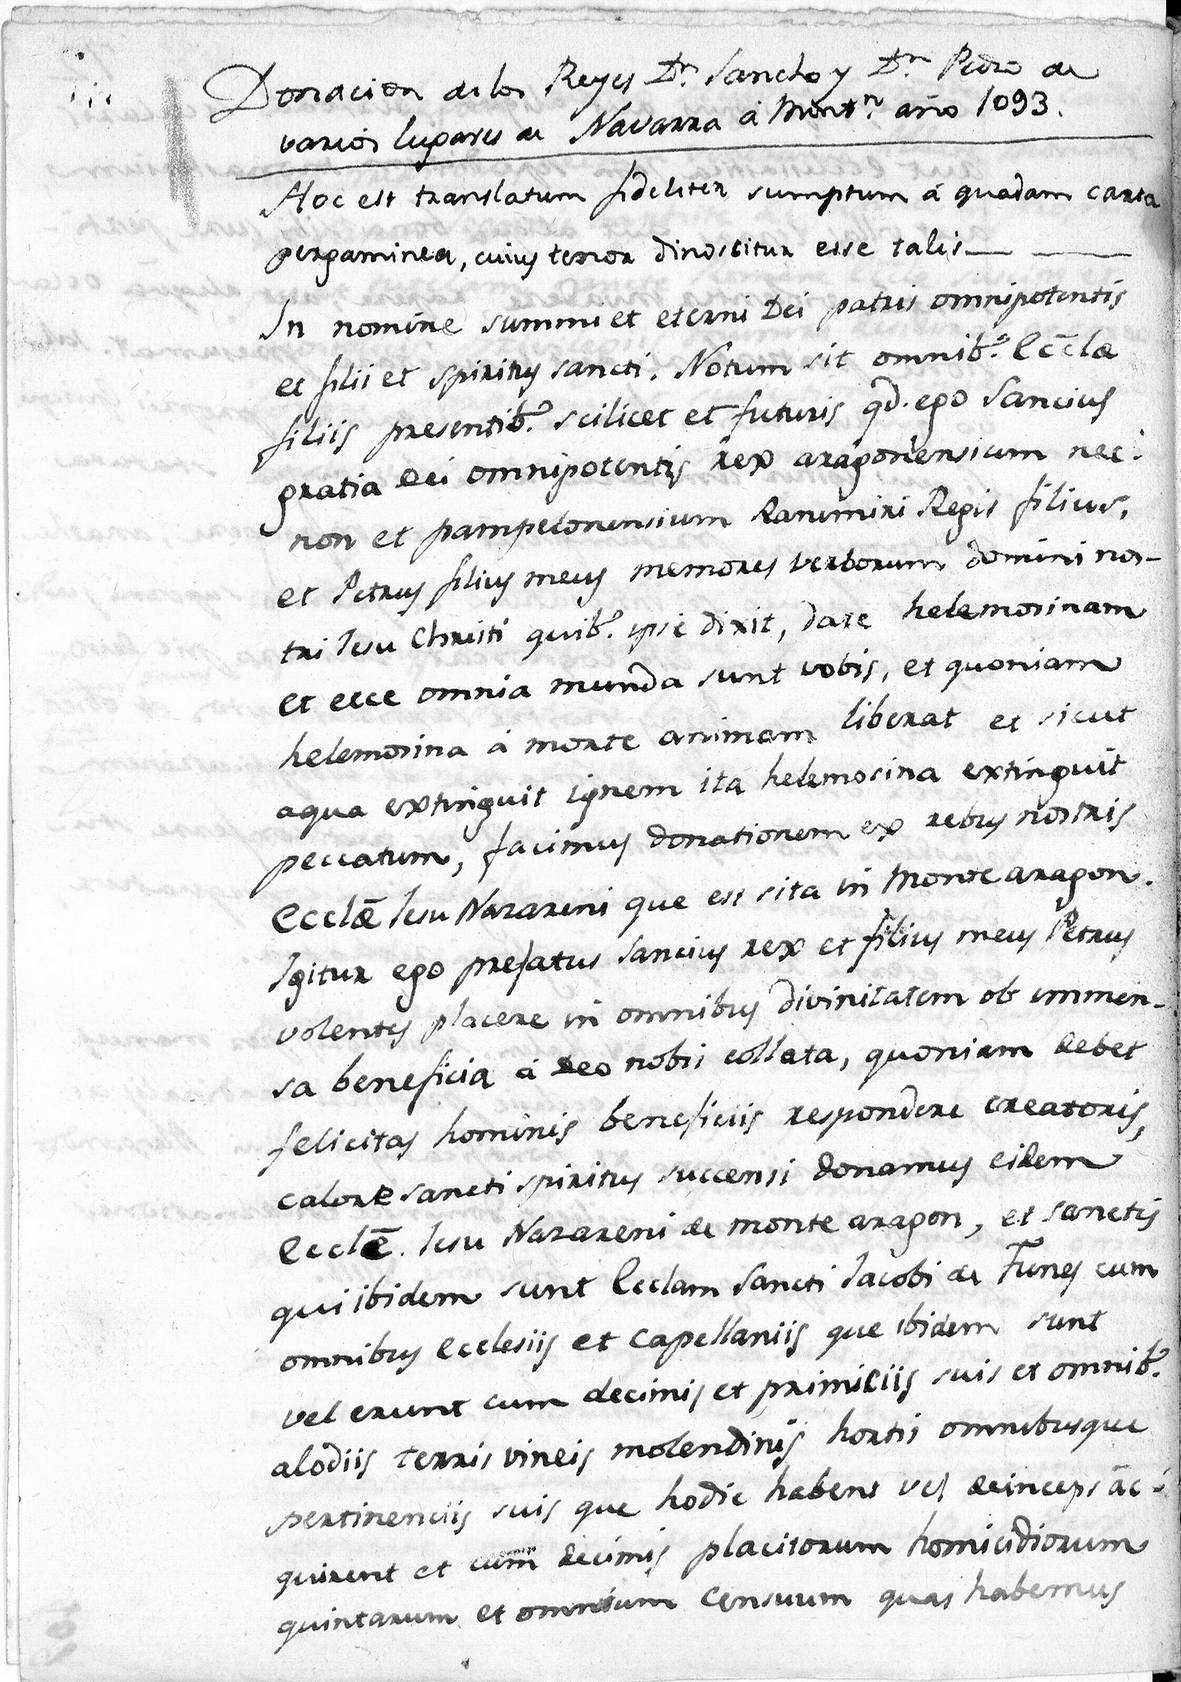 Donacion de los Reyes Dn. Sancho y Dn. Pedro de
varios lugares de Navarra á Montn. año 1093.
Hoc est translatum fideliter sumptum á quadam carta
pergaminea, cuius tenor dinoscitur esse talis
In nomine summi et eterni Dei patris omnipotentis
et filii et spiritus sancti. Notum sit omnib.s Ecclæ
filiis presentib.s scilicet et futuris qd. ego Sancius
gratia Dei omnipotentis rex aragonensium nec
non et pampelonensium Ranimiri Regis filius,
et Petrus filius meus memores verborum domini nos-
tri Jesu Christi quib.s ipse dixit, date helemosinam
et ecce omnia munda sunt vobis, et quoniam
helemosina á morte animam liberat et sicut
aqua extinguit ignem ita helemosina extinguit
peccatum, facimus donationem ex rebus nostris
Ecclæ Jesu Nazareni que est sita in Monte aragon.
Igitur ego prefatus Sancius rex et filius meus Petrus
volentes placere in omnibus divinitatem ob inmen-
sa beneficia á Deo nobis collata, quoniam debet
felicitas hominis beneficiis respondere creatoris,
calore sancti spiritus succensi donamus eidem
Ecclē. Jesu Nazareni de monte aragon, et sanctis
qui ibidem sunt Ecclam Sancti Jacobi de Funes cum
omnibus ecclesiis et capellaniis que ibidem sunt
vel erunt cum decimis et primiciis suis et omnib.s
alodiis terris vineis molendinis hortis omnibusque
pertinenciis suis que hodie habent vel deinceps ac-
quirent et cum decimis placitorum homicidiorum
quintarum et omnium censuum quas habemus